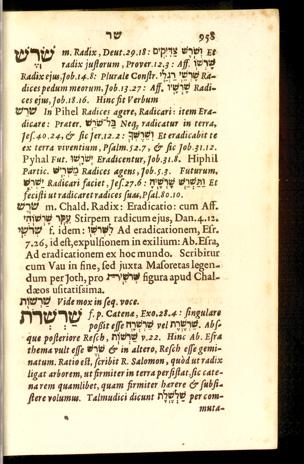 שר 958
שֹׁרֶשׁ m. Radix, Deut.29.18: וְשֹׁרֶשׁ צַדִּיקִים Et
radix justorum, Prover.12.3: Aff. שָׁרְשׁוֹ
Radix ejus, Job.14.8: Plurale Constr. שָׁרְשֵׁי רַגְלַי Ra-
dices pedum meorum, Job.13.27: Aff. שָׁרָשָׁיו Radi-
ces ejus, Job.18.16. Hinc fit Verbum
שרש In Pihel Radices agere, Radicari: item Era-
dicare: Præter. בַּל־שֹׁרֵשׁ Neq, radicatur in terra,
Jes.40.24, & sic Jer.12.2: וְשֵׁרֶשְׁךָ Et eradicabit te
ex terra viventium, Psalm.52.7, & sic Job.31.12.
Pyhal Fut. יְשֹׁרָשׁוּ Eradicentur, Job.31.8. Hiphil
Partic. מַשְׁרִישׁ Radices agens, Job.5.3. Futurum,
יַשְׁרֵשׁ Radicari faciet, Jes.27.6: וַתַּשְׁרֵשׁ שָׁרָשֶׁיהָ Et
ut radicaret radices suas, Psal.80.10.
שרש m. Chald. Radix: Eradicatio: cum Aff.
עִקַּר שָׁרְשׁוֹהִי Stirpem radicum ejus, Dan.4.12.
שרשו f. idem: לִשְׁרֹשׁוּ Ad eradicationem, Esr.
7.26, id est, expulsionem in exilium: Ab. Esra,
Ad eradicationem ex hoc mundo. Scribitur
cum Vau in fine, sed juxta Masoretas legen-
dum per Joth, pro figura apud Chal-
dæos usitatissima.
שרשות Vide mox in seq. voce.
שרשרת f. p. Catena, Exo.28.4: singulare
posset esse שַׁרְשְׁרָה vel שַׁרְשֶׁרֶת. Abs-
que posteriore Resch, שַׁרְשׁוֹת v.22. Hinc Ab. Esra
thema vult esse שרש & in altero, Resch esse gemi-
natum. Ratio est, scribit R. Salomon, quòd ut radix
ligat arborem, ut firmiter in terra persistat, sic cate-
na rem quamlibet, quam firmiter harere & subsi-
stere volumus. Talmudici dicunt שַׁלְשֶׁלֶת per com-
muta-